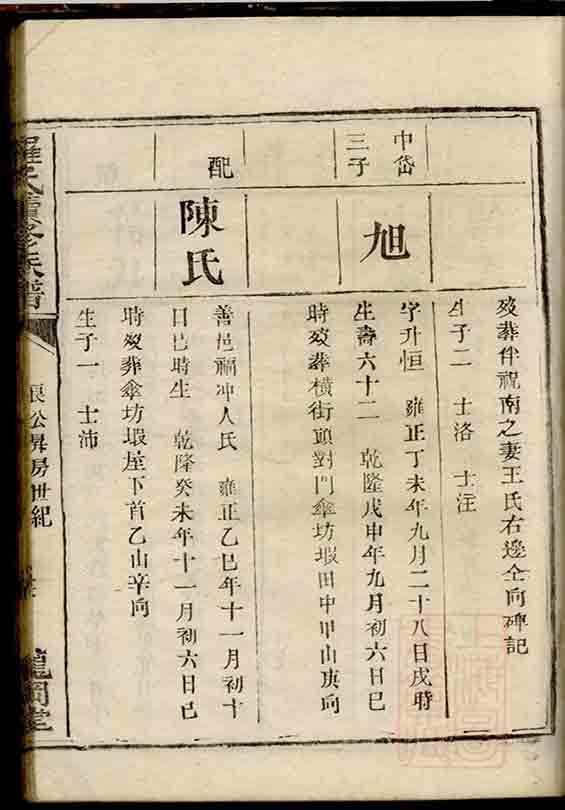 歿葬伴祝南之妻王氏右邊仝向碑記
生子二 士洛 士汪
中岱三子
旭
字升恒 雍正丁未年九月二十八日戌時
生壽六十二 乾隆戊申年九月初六日巳
時歿葬橫街頭對門傘坊塅田中甲山庚向
配
陳氏
善邑福冲人氏 雍正乙巳年十一月初十
日巳時生 乾隆癸未年十一月初六日巳
時歿葬傘坊塅塋下首乙山辛向
生子一 士沛
羅氏續修族譜
公昇房世紀